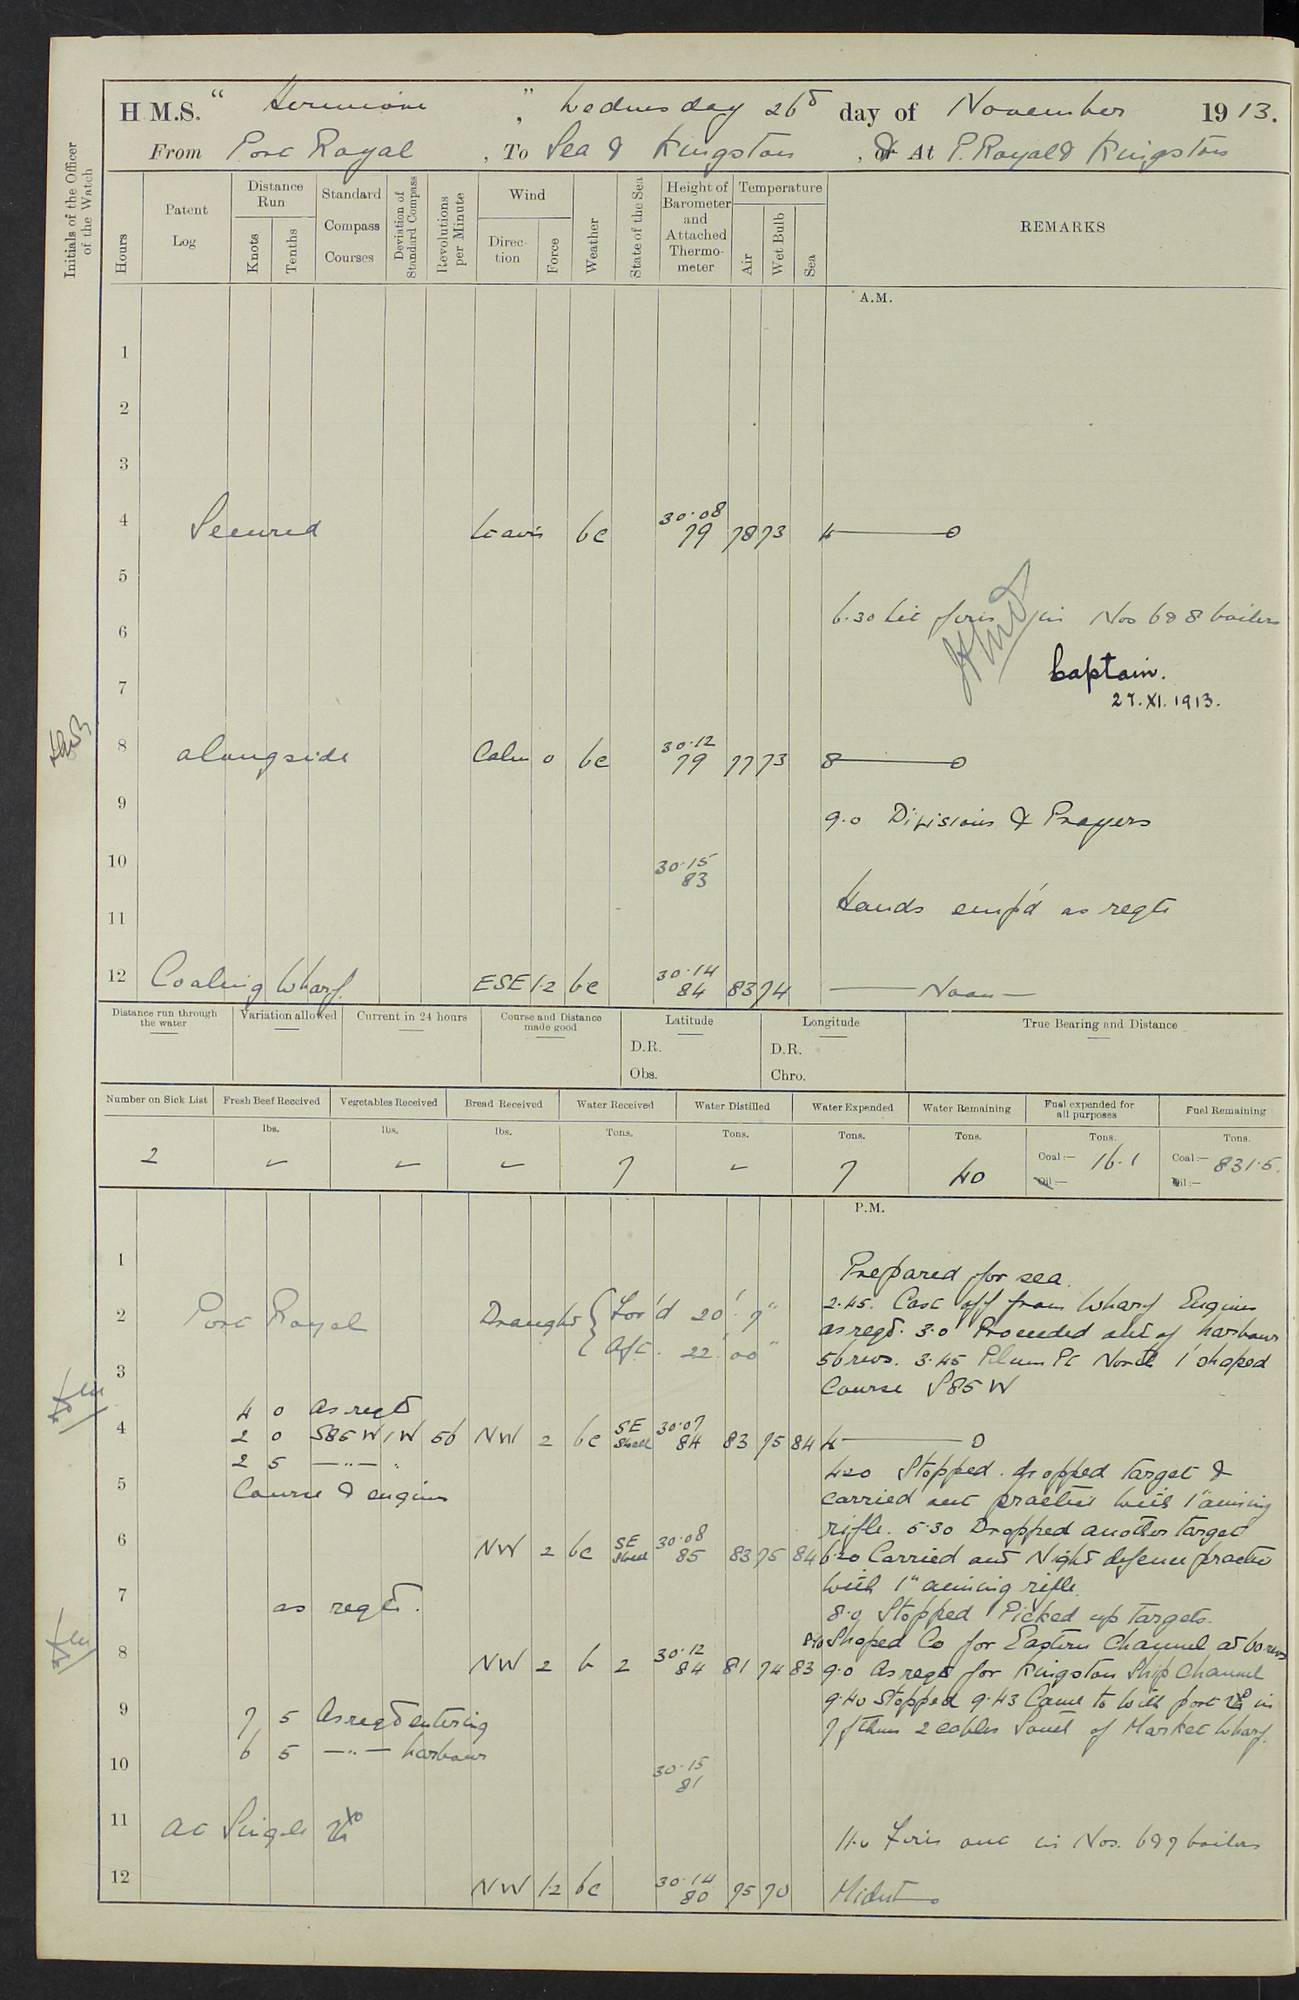 H.M.S. "Hermione", Wednesday 26th day of November 1913.
From Port Royal, To Sea & Kingston, or At P. Royal & Kingston
Initials of the Officer of the Watch
Hours
Patent Log
Distance Run
Knots
Tenths
Standard Compass Courses
Deviation of Standard Compass
Revolutions per Minute
Wind
Direction
Force
Weather
State of the Sea
Height of Barometer and Attached Thermometer
Temperature
Air
Wet Bulb
Sea
REMARKS
A.M.
1
2
3
4 Secured bc 30.08 79 78 73 4
5
6.30 Lit fires in Nos 6 & 8 boilers
6
Captain.
7
27.XI.1913.
8 alongside Calm 0 bc 30.12 79 77 73 8
9
9.0 Divisions & Prayers
10 30.15 83
Hands emp'd as reqte
11
12 Coaling Wharf. ESE 1.2 bc 30.14 84 83 74 Noon
Distance run through the water
Variation allowed
Current in 24 hours
Course and Distance made good
Latitude
D.R.
Obs.
Longitude
D.R.
Chro.
True Bearing and Distance
Number on Sick List
Fresh Beef Received
Vegetables Received
Bread Received
Water Received
Water Distilled
Water Expended
Water Remaining
Fuel expended for all purposes
Fuel Remaining
lbs. lbs. lbs. Tons. Tons. Tons. Tons. Tons. Tons.
2 - - - 7 - 7 40 Coal:— 16.1 Coal:— 831.5.
Oil:— Oil:—
P.M.
1
Prepared for sea.
2 Port Royal Draught { For'd 20' 7"
Aft. 22' 00"
2.45. Cast off from Wharf Engines
as reqd. 3.0 Proceeded out of harbour
3
56 revs. 3.45 Plum Pt North 1' shaped
Course S85W
4 0 As reqd
4 2 0 S85W 1W 56 NW 2 bc SE Swell 30.07 84 83 75 84 4
2 5 —"— "
4.20 Stopped. dropped target &
5 Course & engines
carried out practice with 1" aiming
rifle. 5.30 Dropped another target
6 NW 2 bc SE Swell 30.08 85 83 75 84 6.20 Carried out Night defence practice
with 1" aiming rifle.
7 as reqd.
8.0 Stopped Picked up targets.
8.10 Shaped Co for Eastern Channel at 60 revs
8 NW 2 b 2 30.12 84 81 74 83 9.0 As reqd for Kingston Ship Channel
9.40 Stopped 9.43 Came to with port in
9 7 5 As reqd entering
7 fthms 2 cables South of Market Wharf.
6 5 —"— harbour
10 30.15 81
11 At Single
11.0 Fires out in Nos. 6 & 7 boilers
12 NW 1.2 bc 30.14 80 75 70 Midnt